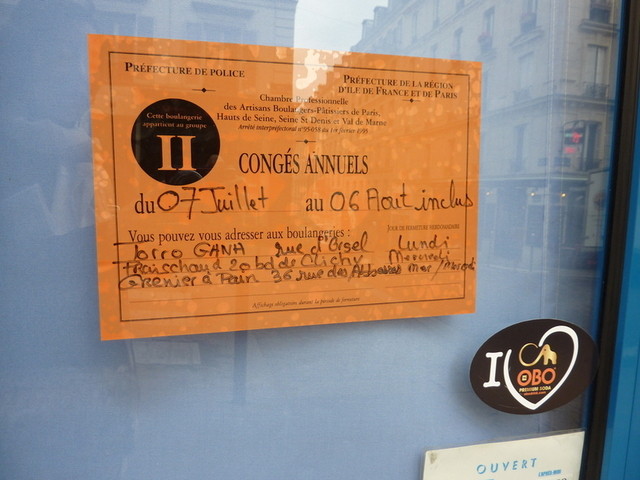 PRÉFECTURE DE POLICE
PRÉFECTURE DE LA RÉGION
D'ILE DE FRANCE ET DE PARIS
Chambre Professionnelle
des Artisans Boulangers-Pâtissiers de Paris,
Hauts de Seine, Seine St Denis et Val de Marne
Arrêté interpréfectoral n°95-658 du 1er février 1995
Cette boulangerie
appartient au groupe
II
CONGÉS ANNUELS
du 07 Juillet au 06 Aout inclus
Vous pouvez vous adresser aux boulangeries :
JOUR DE FERMETURE HEBDOMADAIRE
Torro GANA rue d'Orsel Lundi
Fraischaud 20 bd de Clichy Mercredi
Grenier à Pain 36 rue des Abbesses Mar/Mercredi
Affichage obligatoire durant la période de fermeture
I
OBO
PREMIUM SODA
OUVERT
L'APRÈS-MIDI